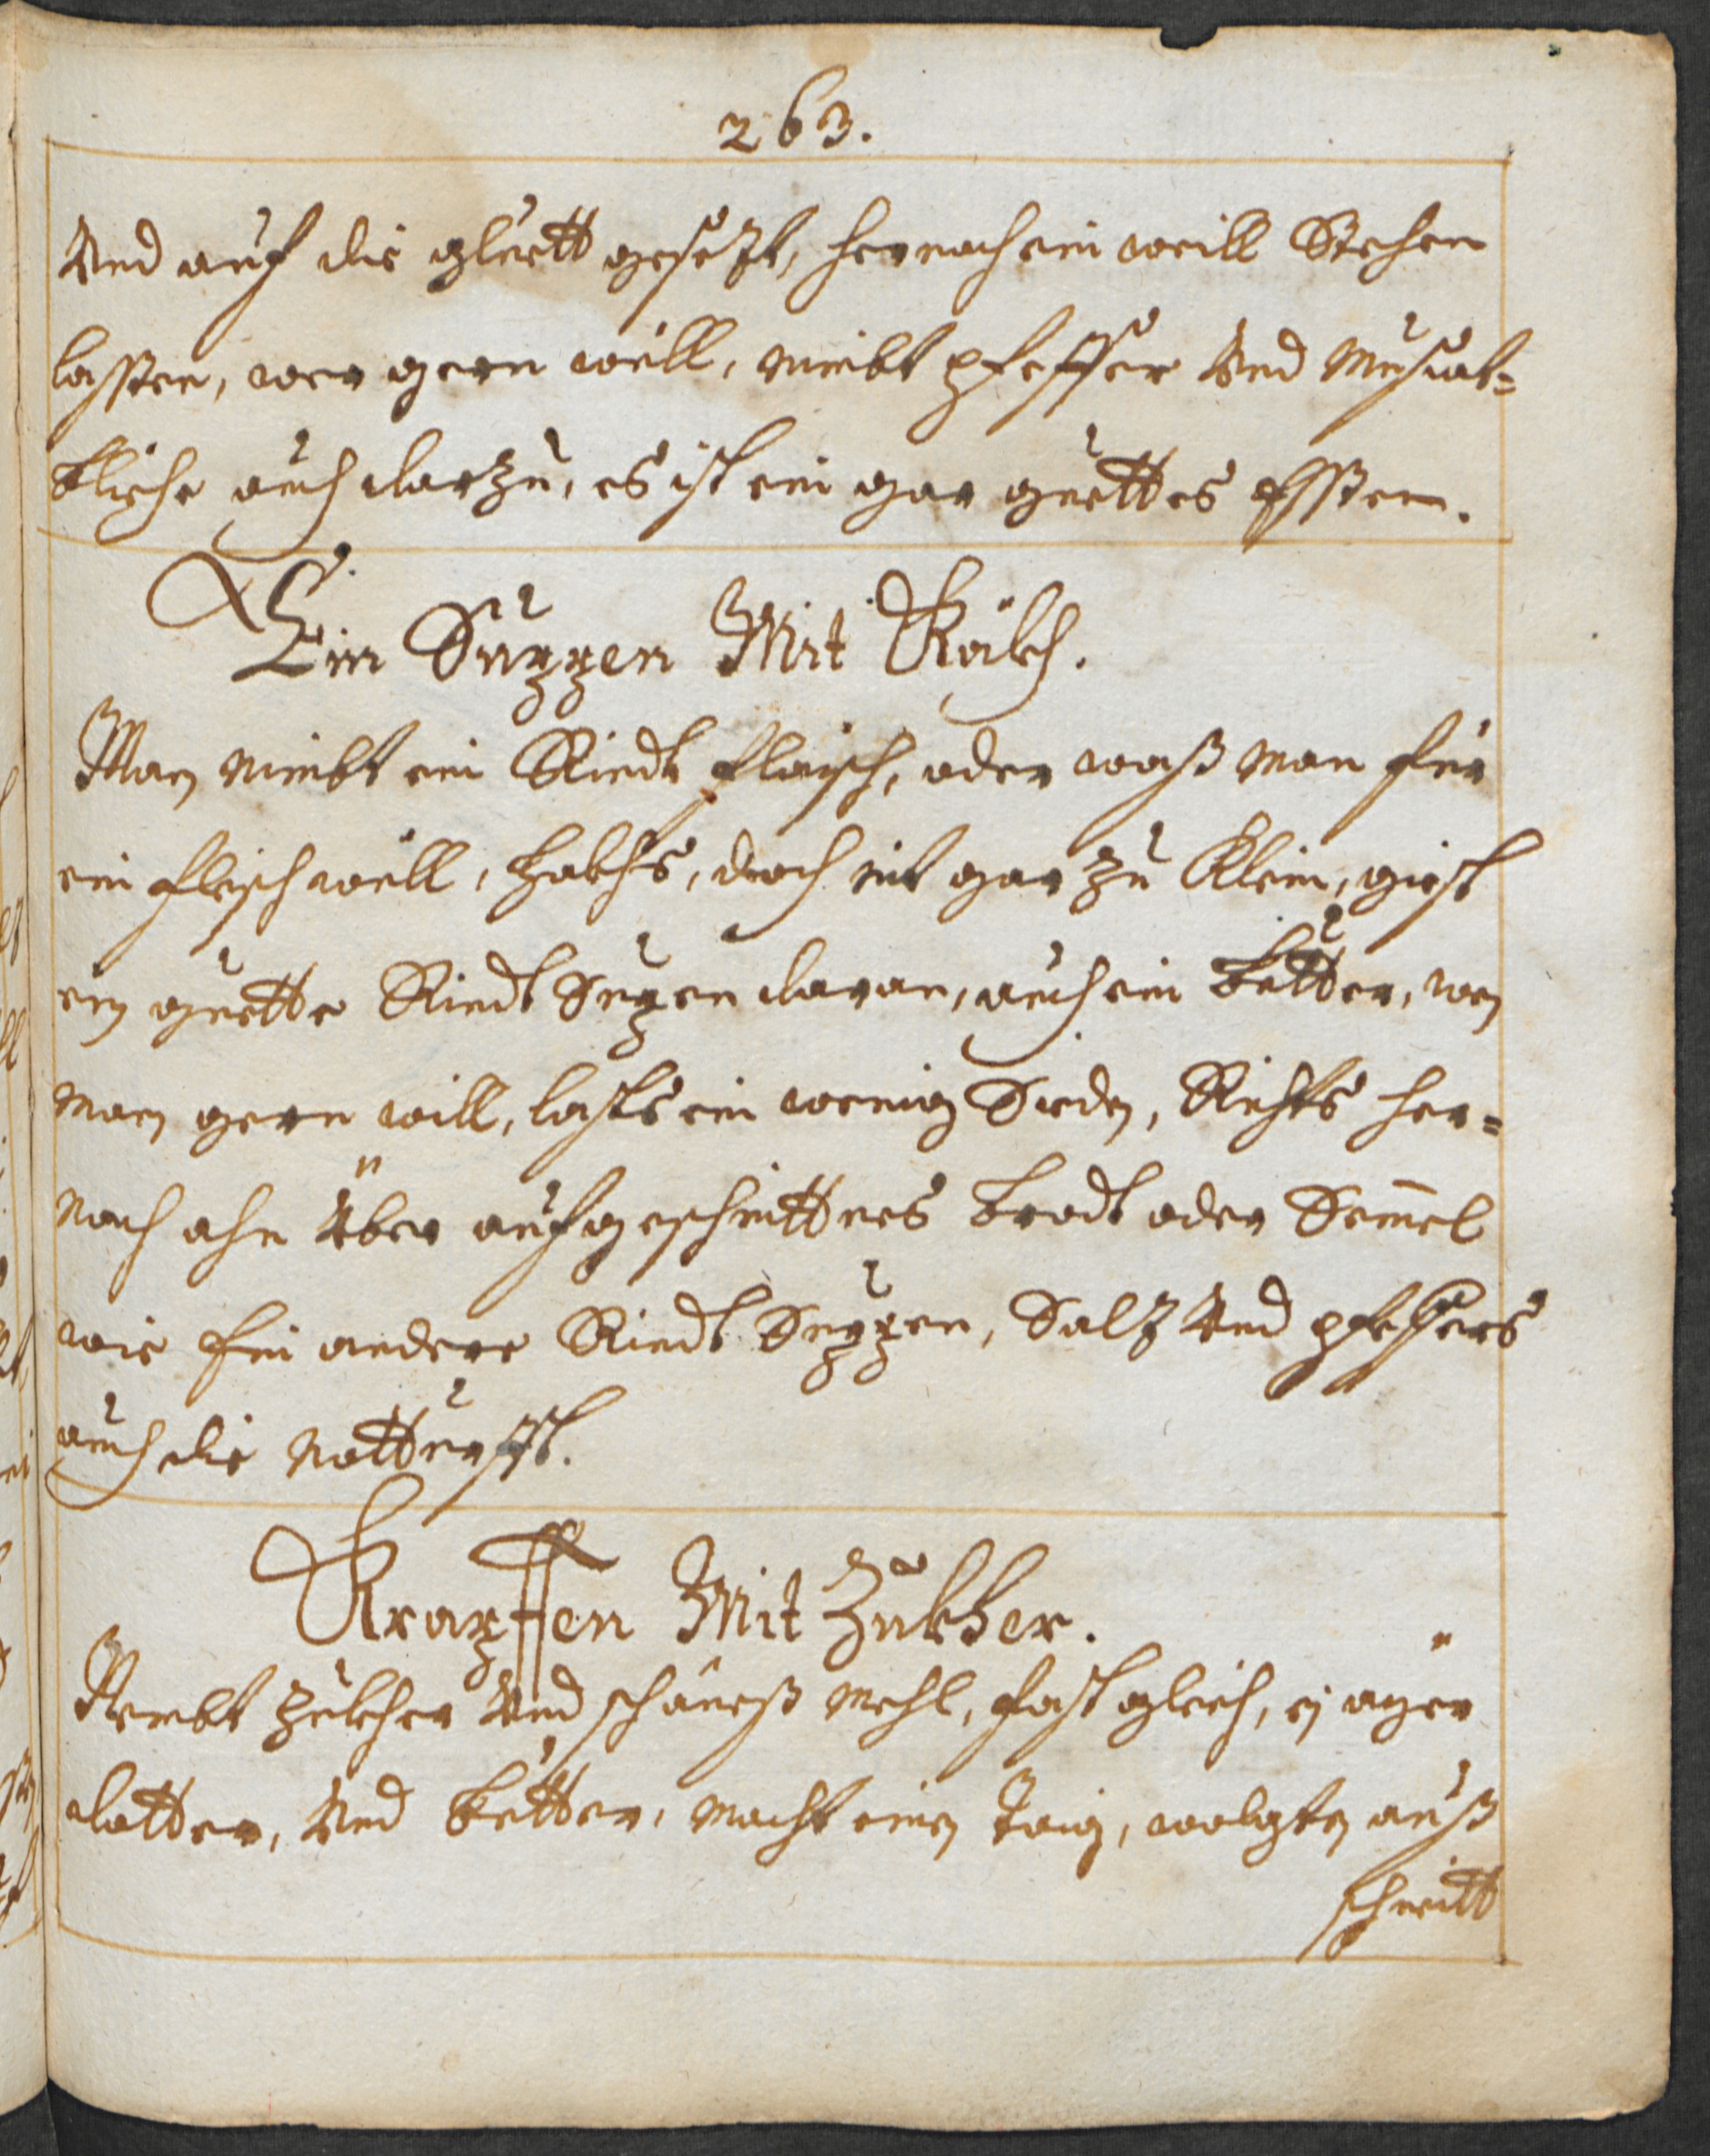 263.
Vnd auf die gluett gesezt, hernach ein weill Stehen
lassen, wer gern will, nimbt pfeffer Vnd Muscat=
bliehe auch darzu, es ist ein gar guettes Essen.
Ein Suppen Mit Kälch.
Man nimbt ein Rindt fleisch, oder waß man für
ein fleisch will, hakhs, doch nit gar zu Klein, giest
ein guette Rindt Supen daran, auch ein Butter, wen
man gern will, lasts ein wenig Sieden, Richts her=
nach ahn über aufgeschnittnes brodt oder Semel
wie ein andere Rindt Suppen, Salz Vnd pfeffers
auch die notturfft.
Krapffen Mit Zukher.
Nembt Zukher Vnd schöneß Mehl, fast gleich, ein ayer
dotter, Vnd butter, macht einen taig, walgten auß
schneitt